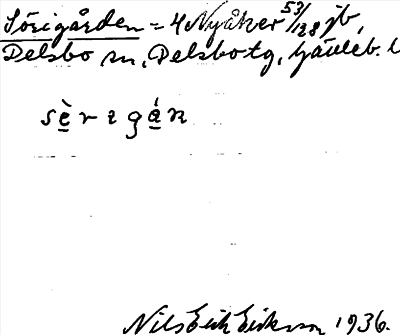 Sörigården = 4 Nyåker 53/128 jb,
Delsbo sn, Delsbo tg, Gävleb. l
sèrigán
Nils Erik Eriksson 1936.